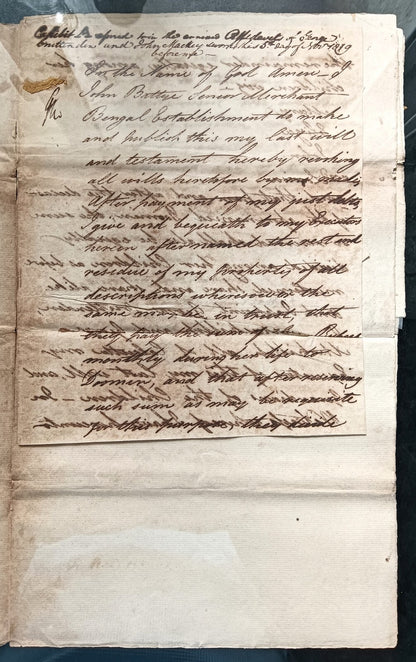 Exhibit A referred to in the annexed Affidavit of George
Cruttenden and John Mackey sworn this 5th day of Novr 1819
before me
In the Name of God Amen I
John Battye Senior Merchant
Bengal Establishment do make
and publish this my last will
and testament hereby revoking
all wills heretofore by me made
After payment of my just debts
I give and bequeath to my Executors
herein afternamed the rest and
residue of my property of all
descriptions wheresoever the
same may be in trust, that
they pay thereout
monthly during her life to
Doomen, and that after
such sum as may be requisite
for this purpose they divide